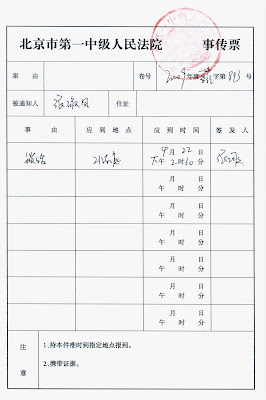 北京市第一中级人民法院 事传票
案由 卷号 2009年度 字第893号
被通知人 张淑凤 住址
事由 应到地点 应到时间 签发人
谈话 9月22日
下午2时30分
月 日
午 时 分
月 日
午 时 分
月 日
午 时 分
月 日
午 时 分
月 日
午 时 分
注意
1.持本件准时到指定地点报到。
2.携带证据。